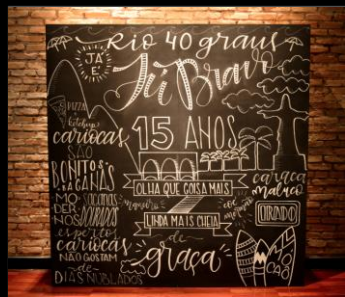 Rio 40 graus
JÁ É!
Jú Bravo
PIZZA
ketchup
15 ANOS
cariocas
SÃO
BONITOS
BACANAS
MODERNOS
sacanas
DOURADOS
espertos
cariocas
NÃO GOSTAM
de
DIAS NUBLADOS
OLHA QUE COISA MAIS
LINDA MAIS CHEIA
de
graça
maneiro
caraca
maluco
IRADO
MOCAO